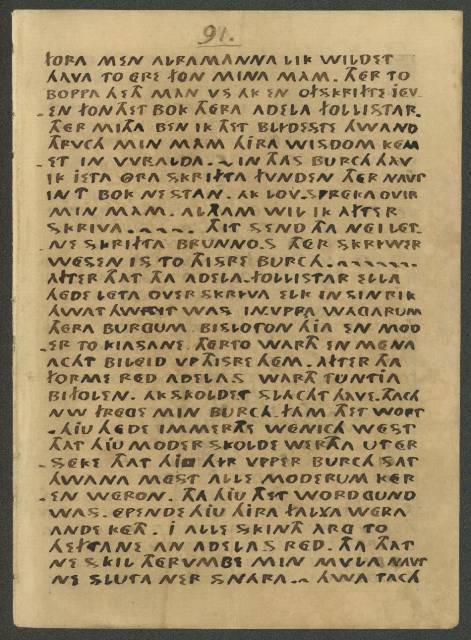 91.
FORA MEN ALRAMANNA LIK WILDET
HAVA TO ERE FON MINA MAM. THER TO
BOPPA HETH MAN VS AK EN OFSKRIFTE JEV
-EN FON THET BOK THERA ADELA FOLLISTAR.
THER MITHA BEN IK THET BLIDESTE HWAND
THRVCH MIN MAM HIRA WISDOM KEM
-ET IN VVRALDA. ~ IN THAS BURCH HAV
IK JETA OTHRA SKRIFTA FUNDEN THER NAVT
IN T BOK NE STAN. AK LOV-SPREKA OVIR
MIN MAM. ALTHAM WIL IK AFTER
SKRIVA. ~~~~ THIT SEND THA NEILET-
NE SKRIFTA BRUNNO.S THER SKRIWER
WESEN IS TO THISRE BURCH. ~~~~~~
AFTER THAT THA ADELA-FOLLISTAR ELLA
HEDE LETA OVERSKRIVA ELK IN SIN RIK
HWAT HWRIT WAS IN VPPA WAGARUM
THERA BURGUM BISLOTON HJA EN MOD
-ER TO KJASANE. THERTO WARTH EN MENA
ACHT BILEID VP THISRE HEM. AFTER THA
FORME RED ADELAS WARTH TUNTJA
BIFOLEN. AK SKOLDET SLACHT HAVE. THACH
NW FREGE MIN BURCH-FAM THET WORT
-HJU HEDE IMMERTHE WENICH WEST
THAT HJU MODER SKOLDE WERTHA UTER
-SEKE THAT HJU HIR VPPER BURCH SAT
HWANA MEST ALLE MODERUM KER
-EN WERON. THA HJU THET WORD GUND
WAS. EPENDE HJU HIRA FALXA WERA
ANDE KETH. I ALLE SKINATH ARG TO
HEFTANE AN ADELAS RED. THA THAT
NE SKIL THERUMBE MIN MVLA NAVT
NE SLUTA NER SNARA. ~ HWA TACH